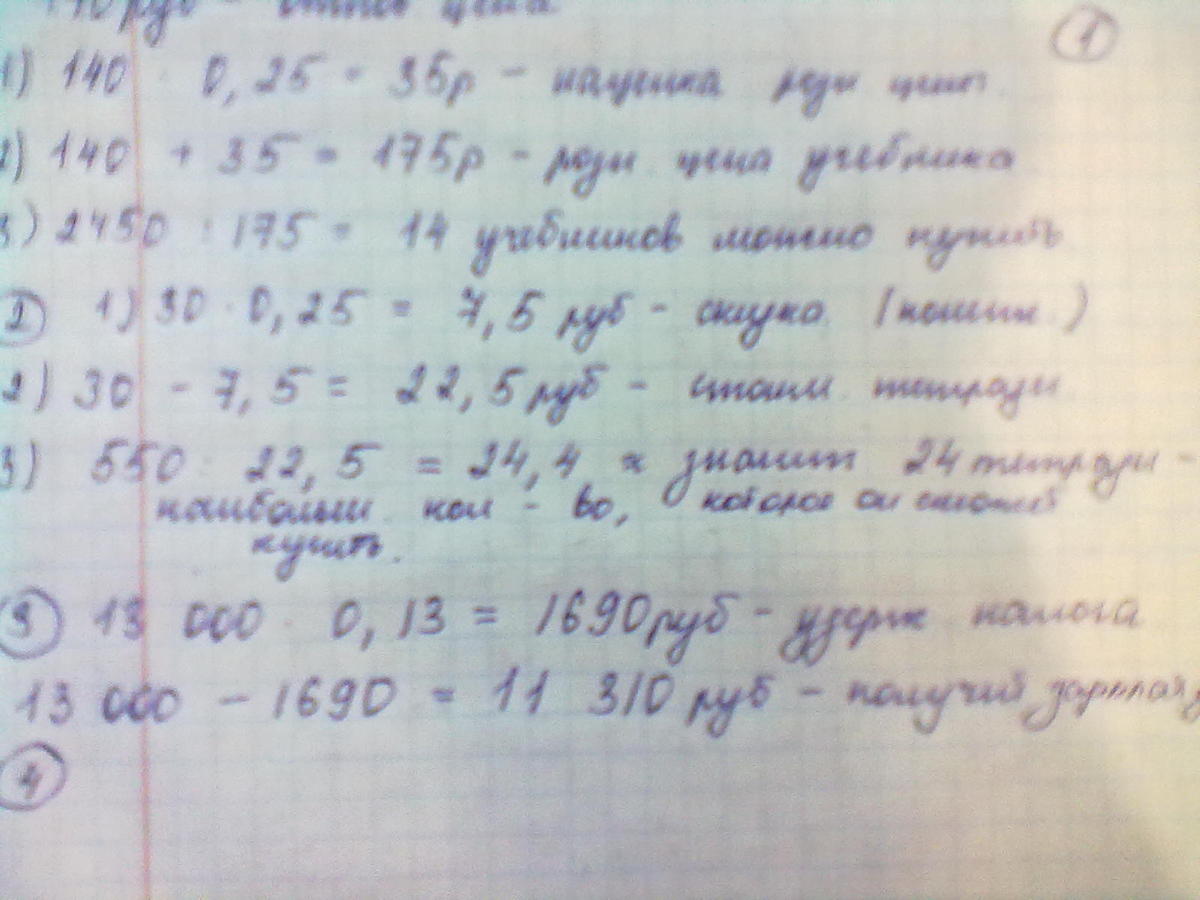 140 руб - оптов цена
1
1) 140 · 0,25 = 35р - наценка розн цены.
2) 140 + 35 = 175р - розн. цена учебника
3) 2450 : 175 = 14 учебников можно купить
2 1) 30 · 0,25 = 7,5 руб - скидка
2) 30 - 7,5 = 22,5 руб - стоим. тетради.
3) 550 : 22,5 = 24,4 значит 24 тетради -
наибольш. кол - во, которое он сможет
купить.
3 13 000 · 0,13 = 1690 руб - удерж налога
13 000 - 1690 = 11 310 руб - получил зарплату
4